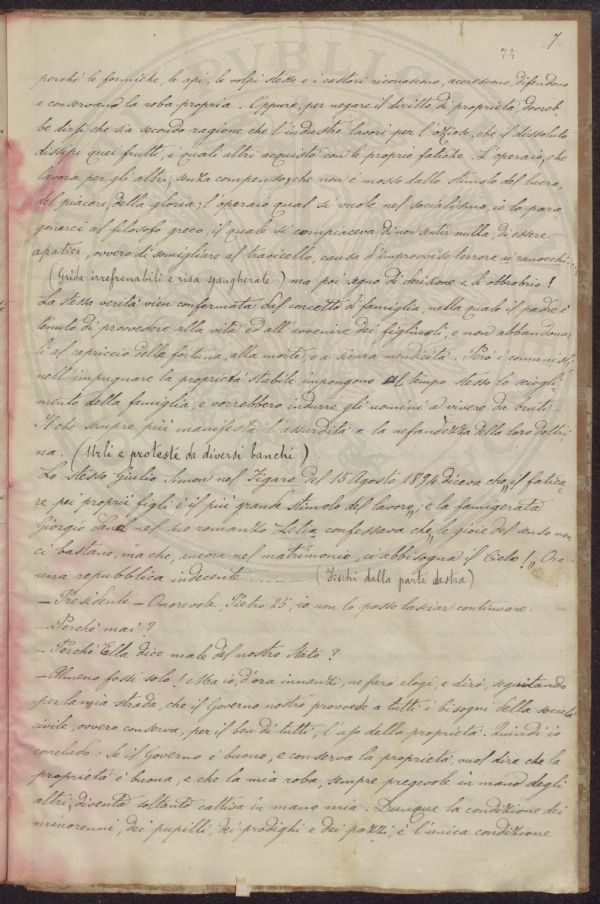 7.
74
perché le formiche, le api, le volpi stesse e i castori riconoscono, accrescono, difendono
e conservano la roba propria. Oppure, per negare il diritto di proprietà, dovreb-
be dirsi che sia secondo ragione che l'industre lavori per l'ozioso, che il dissoluto
dissipi quei frutti, i quali altri acquistò con le proprie fatiche. L'operaio, che
lavora per gli altri, senza compenso, che non è mosso dallo stimolo del lucro,
del piacere, della gloria; l'operaio qual si vuole nel socialismo, io lo para
gonerei al filosofo greco, il quale si compiaceva di non sentir nulla, di essere
apatico, ovvero di somigliare al travicello, causa d'improvviso terrore ai ranocchi..
(Grida irrefrenabili e risa sgangherate) ma poi segno di derisione e di obbrobrio!
La stessa verità vien confermata dal concetto di famiglia, nella quale il padre è
tenuto di provvedere alla vita ed all'avvenire dei figliuoli, e non abbandonar
li al capriccio della fortuna, alla morte, o a sicura mendicità. Però i comunisti,
nell'impugnare la proprietà stabile, impongono al tempo stesso lo sciogli-
mento della famiglia, e vorrebbero indurre gli uomini a vivere da bruti.
Il che sempre più manifesta l'assurdità e la nefandezza della loro dottri
na. (Urli e proteste da diversi banchi).
Lo stesso Giulio Simon nel Figaro del 15 Agosto 1894 diceva che „il fatica-
re pei proprii figli è il più grande stimolo del lavoro„; e la famigerata
Giorgio Sand nel suo romanzo Lelia confessava che „le gioie del senso non
ci bastano, ma che, ancora nel matrimonio, ci abbisogna il Cielo!„ Ora
una repubblica indecente ..... (Fischi dalla parte destra)
— Presidente — Onorevole Pietro 25, io non lo posso lasciar continuare.
— Perché mai?
— Perché Ella dice male del nostro Stato?
— Almeno fossi solo! Ma io, d'ora innanzi, ne farò elogi, e dirò, seguitando
per la mia strada, che il Governo nostro provvede a tutti i bisogni della società
civile, ovvero conserva, per il ben di tutti, l'uso della proprietà. Quindi io
concludo: se il Governo è buono, e conserva la proprietà, vuol dire che la
proprietà è buona, e che la mia roba, sempre pregevole in mano degli
altri, diventa soltanto cattiva in mano mia. Dunque la condizione dei
minorenni, dei pupilli, dei prodighi e dei pazzi, è l'unica condizione